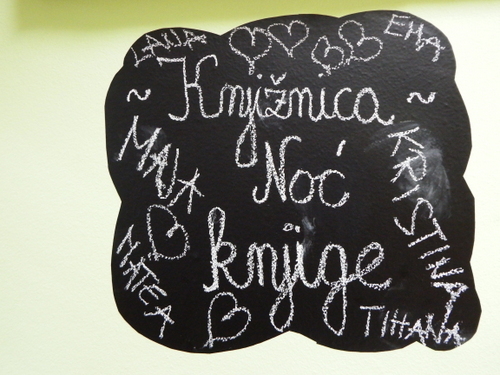 LANA
EMA
~ Knjižnica ~
Noć
knjige
MAJA
KRISTINA
MATEA
TIHANA